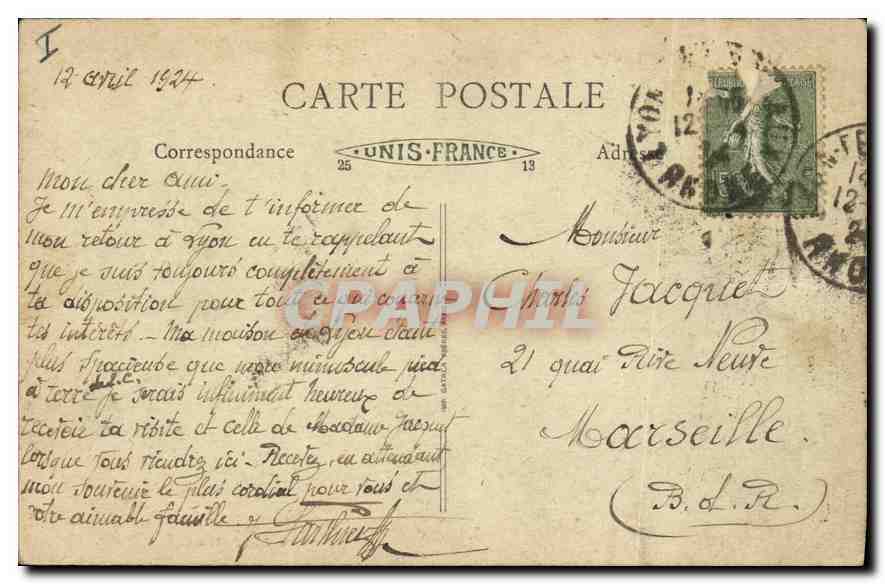 I
12 avril 1924
CARTE POSTALE
Correspondance
UNIS-FRANCE
25 13
Adresse
Mon cher ami.
Je m'empresse de t'informer de
mon retour à Lyon en te rappelant
que je suis toujours complètement à
ta disposition pour tout ce qui concerne
tes intérêts. — Ma maison de Lyon étant
plus spacieuse que mon minuscule pied
à terre je serais infiniment heureux de
recevoir ta visite et celle de Madame Jacquet
lorsque vous viendrez ici. Recevez, en attendant
mon souvenir le plus cordial pour vous et
votre aimable famille
Monsieur
Charles Jacquet
21 quai Rive Neuve
Marseille.
(B.d.R.)
LYON
12
CPAPHIL